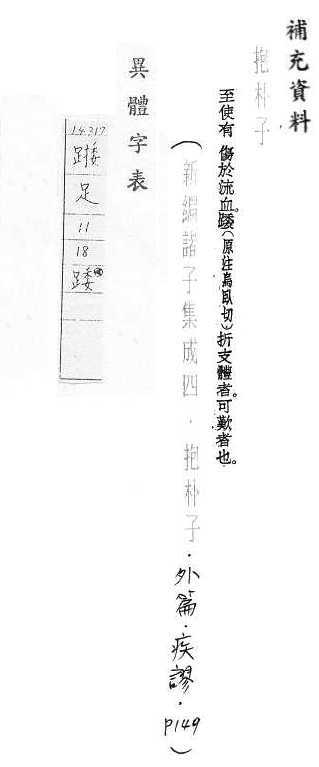 補充資料
抱朴子
至使有傷於流血。踒(原注烏臥切)折支體者。可歎者也。
(新編諸子集成四．抱朴子．外篇．疾謬．P149)
異體字表
14317
足
11
18
踒